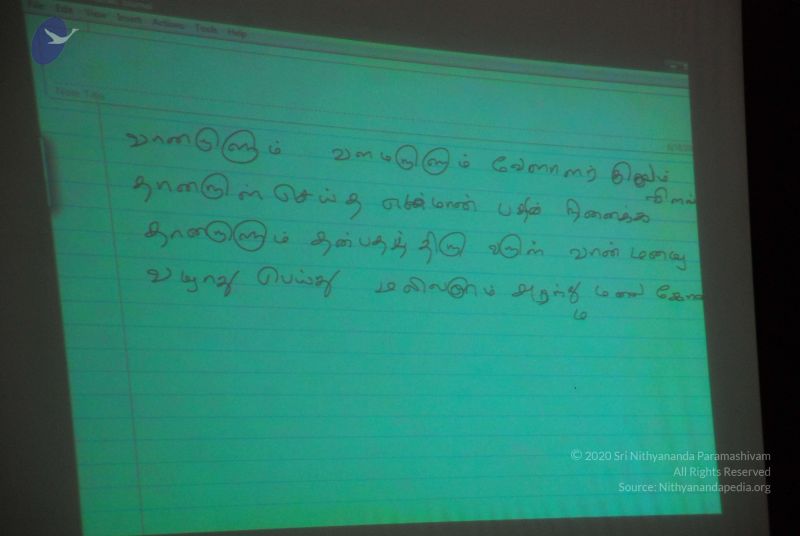 File Edit View Insert Actions Tools Help
Note Title
வானருளும் வளமருளும் வேளாளர்
தானருள் செய்த எம்மான் பதம் நினைக்க
தானருளும் தன்பதத் திரு வருள் வான் மழை
வழாது பெய்து மலிவளம் சுரந்து மண்
© 2020 Sri Nithyananda Paramashivam
All Rights Reserved
Source: Nithyanandapedia.org